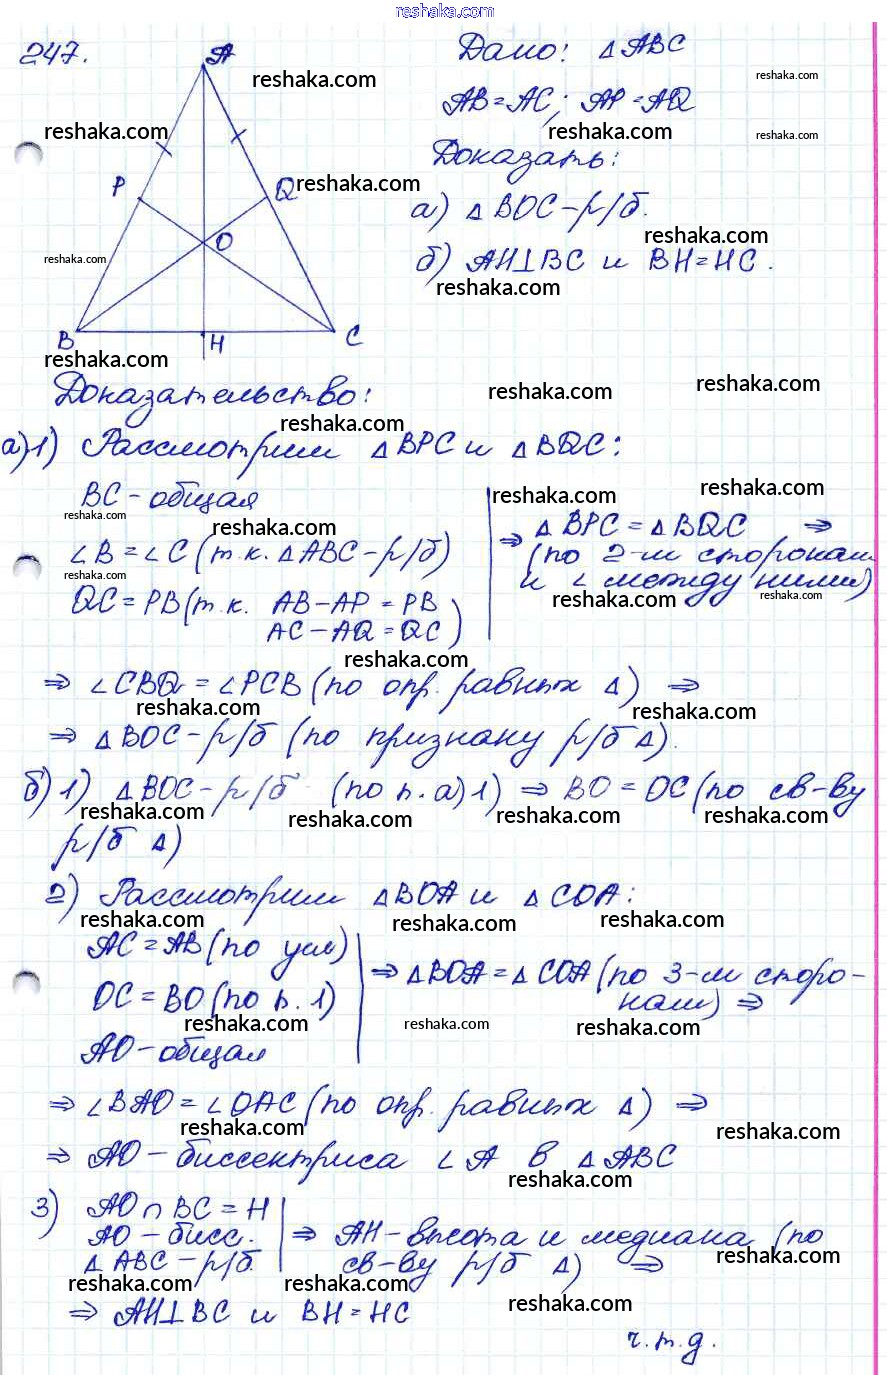 reshaka.com
247.
Дано: △ABC
AB=AC; AP=AQ
Доказать:
а) △BOC-р/б.
б) AH⊥BC и BH=HC.
A
P
Q
O
B
H
C
Доказательство:
а) 1) Рассмотрим △BPC и △BQC:
BC-общая
∠B=∠C (т.к. △ABC-р/б)
QC=PB (т.к. AB-AP=PB
AC-AQ=QC)
⇒ △BPC=△BQC ⇒
(по 2-м сторонам
и ∠ между ними)
⇒ ∠CBQ=∠PCB (по опр. равных △) ⇒
⇒ △BOC-р/б (по признаку р/б △).
б) 1) △BOC-р/б (по п. а) 1) ⇒ BO=OC (по св-ву
р/б △)
2) Рассмотрим △BOA и △COA:
AC=AB (по усл)
OC=BO (по п. 1)
AO-общая
⇒ △BOA=△COA (по 3-м сторо-
нам) ⇒
⇒ ∠BAO=∠OAC (по опр. равных △) ⇒
⇒ AO-биссектриса ∠A в △ABC
3) AO∩BC=H
AO-бисс.
△ABC-р/б
⇒ AH-высота и медиана (по
св-ву р/б △) ⇒
⇒ AH⊥BC и BH=HC
ч.т.д.